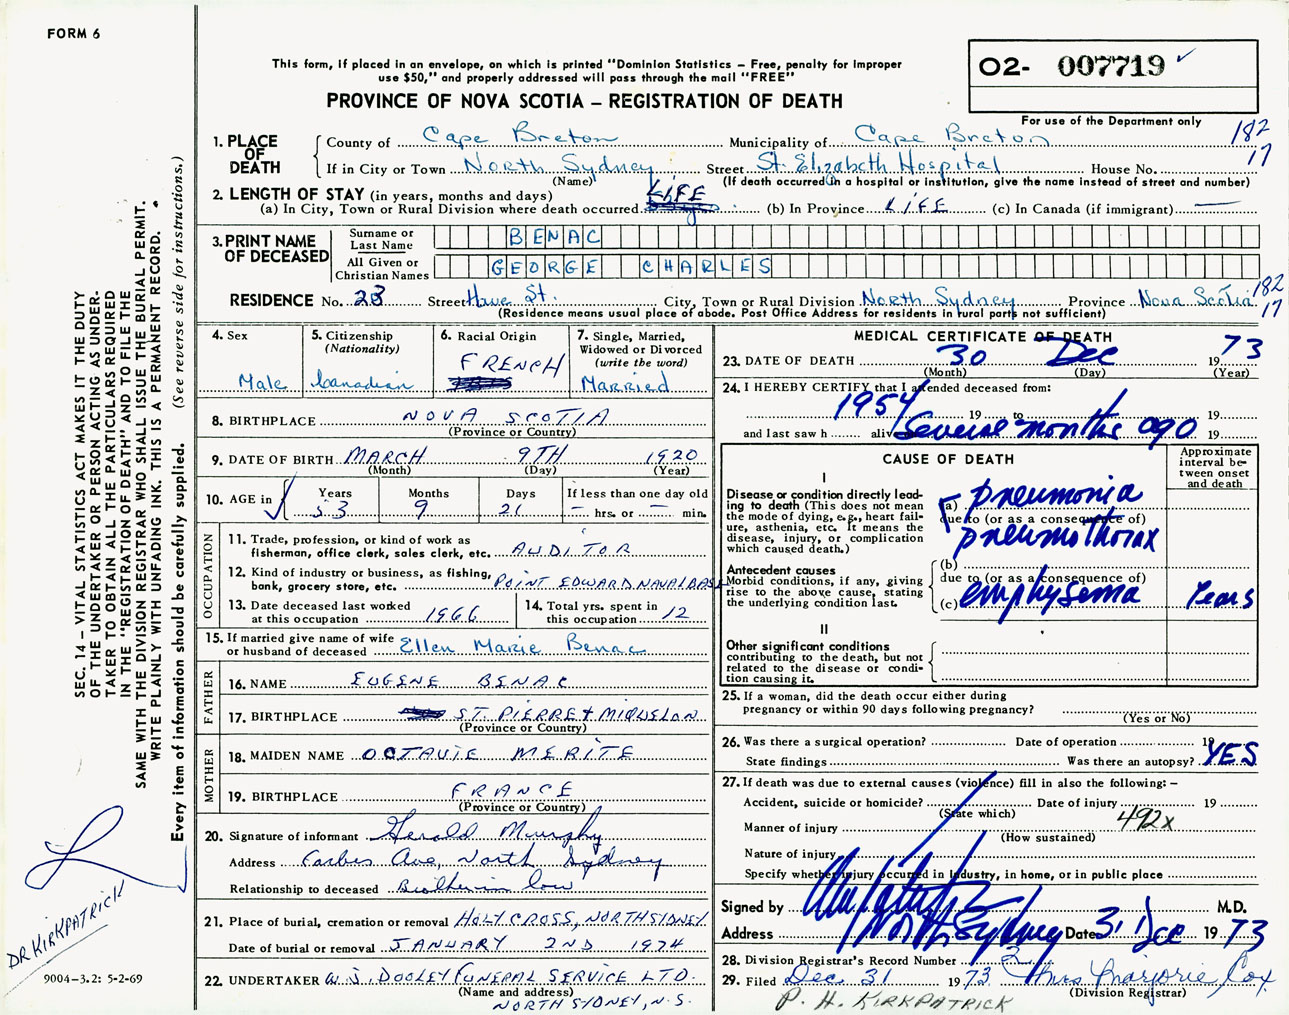 FORM 6
This form, if placed in an envelope, on which is printed "Dominion Statistics – Free, penalty for improper
use $50," and properly addressed will pass through the mail "FREE"
PROVINCE OF NOVA SCOTIA – REGISTRATION OF DEATH
02- 007719
For use of the Department only
182
17
1. PLACE OF DEATH
County of Cape Breton Municipality of Cape Breton
If in City or Town North Sydney Street St. Elizabeth Hospital House No.
(Name) (If death occurred in a hospital or institution, give the name instead of street and number)
2. LENGTH OF STAY (in years, months and days)
(a) In City, Town or Rural Division where death occurred LIFE (b) In Province LIFE (c) In Canada (if immigrant) —
3. PRINT NAME OF DECEASED
Surname or Last Name BENAC
All Given or Christian Names GEORGE CHARLES
RESIDENCE No. 23 Street St. City, Town or Rural Division North Sydney Province Nova Scotia
182
17
(Residence means usual place of abode. Post Office Address for residents in rural parts not sufficient)
4. Sex
Male
5. Citizenship
(Nationality)
Canadian
6. Racial Origin
FRENCH
7. Single, Married,
Widowed or Divorced
(write the word)
Married
8. BIRTHPLACE NOVA SCOTIA
(Province or Country)
9. DATE OF BIRTH MARCH 9TH 1920
(Month) (Day) (Year)
10. AGE in
Years Months Days If less than one day old
53 9 21 – hrs. or – min.
OCCUPATION
11. Trade, profession, or kind of work as
fisherman, office clerk, sales clerk, etc. AUDITOR
12. Kind of industry or business, as fishing,
bank, grocery store, etc. POINT EDWARD NAVAL BASE
13. Date deceased last worked
at this occupation 1966
14. Total yrs. spent in
this occupation 12
15. If married give name of wife
or husband of deceased Ellen Marie Benac
FATHER
16. NAME EUGENE BENAC
17. BIRTHPLACE ST. PIERRE + MIQUELON
(Province or Country)
MOTHER
18. MAIDEN NAME OCTAVIE MERITE
19. BIRTHPLACE FRANCE
(Province or Country)
20. Signature of informant Gerald Murphy
Address Forbes Ave, North Sydney
Relationship to deceased law
21. Place of burial, cremation or removal HOLY CROSS, NORTH SIDNEY
Date of burial or removal JANUARY 2ND 1974
22. UNDERTAKER W. J. DOOLEY FUNERAL SERVICE LTD.
(Name and address)
NORTH SYDNEY, N.S.
MEDICAL CERTIFICATE OF DEATH
23. DATE OF DEATH 30 Dec 1973
(Month) (Day) (Year)
24. I HEREBY CERTIFY that I attended deceased from:
1954 19 to 19
and last saw h alive Several months ago 19
CAUSE OF DEATH
Approximate interval between onset and death
I
Disease or condition directly leading to death (This does not mean the mode of dying, e.g., heart failure, asthenia, etc. It means the disease, injury, or complication which caused death.)
(a) pneumonia
due to (or as a consequence of)
pneumothorax
Antecedent causes
Morbid conditions, if any, giving rise to the above cause, stating the underlying condition last.
(b)
due to (or as a consequence of)
(c) emphysema Years
II
Other significant conditions
contributing to the death, but not related to the disease or condition causing it.
25. If a woman, did the death occur either during
pregnancy or within 90 days following pregnancy?
(Yes or No)
26. Was there a surgical operation? Date of operation 19
State findings Was there an autopsy? YES
27. If death was due to external causes (violence) fill in also the following: –
Accident, suicide or homicide? Date of injury 19
(State which) 492x
Manner of injury
(How sustained)
Nature of injury
Specify whether injury occurred in Industry, in home, or in public place
Signed by M.D.
Address North Sydney Date 31 Dec 1973
28. Division Registrar's Record Number 2
29. Filed Dec 31 1973 Mrs Marjorie Cox
(Division Registrar)
P. H. KIRKPATRICK
SEC. 14 – VITAL STATISTICS ACT MAKES IT THE DUTY
OF THE UNDERTAKER OR PERSON ACTING AS UNDER-
TAKER TO OBTAIN ALL THE PARTICULARS REQUIRED
IN THE "REGISTRATION OF DEATH" AND TO FILE THE
SAME WITH THE DIVISION REGISTRAR WHO SHALL ISSUE THE BURIAL PERMIT.
WRITE PLAINLY WITH UNFADING INK. THIS IS A PERMANENT RECORD.
Every item of information should be carefully supplied. (See reverse side for instructions.)
DR KIRKPATRICK
9004–3.2: 5-2-69